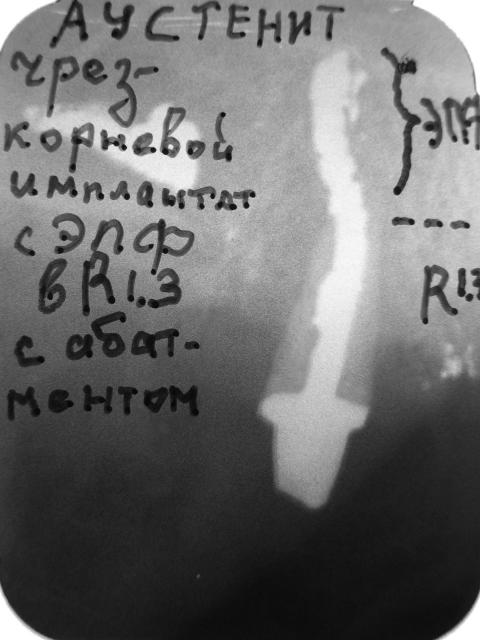 АУСТЕНИТ
чрез-
корневой
имплантат
с ЭПФ
в R1.3
с абат-
ментом
---
R1.3